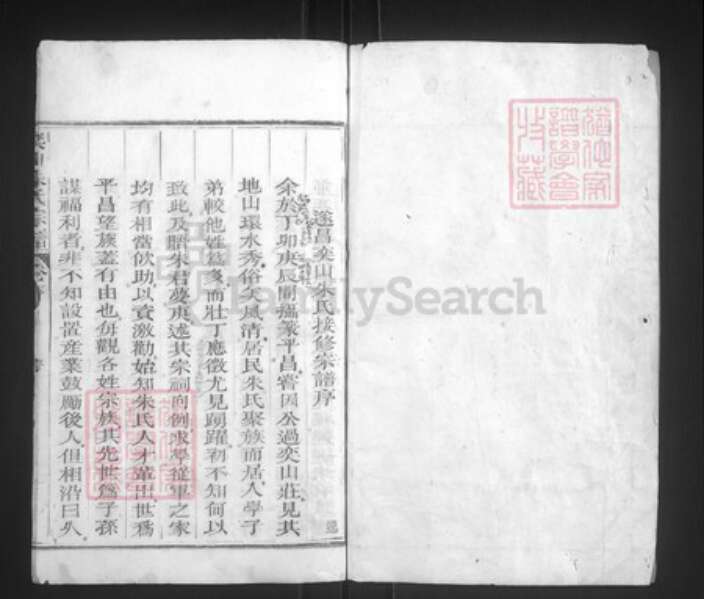 遂昌奕山朱氏接修宗譜序
余於丁卯庚辰間攝篆平昌嘗因公過奕山莊見其
地山環水秀俗美風清居民朱氏聚族而居人學子
弟較他姓為多而壯丁應徵尤見踴躍初不知何以
致此及聞朱君夢庚述其宗祠向例求學從軍之家
均有相當佽助以資激勸始知朱氏人才輩出世為
平昌望族蓋有由也每觀各姓宗族其先世為子孫
謀福利者非不知設置產業鼓勵後人但相沿日久
譜學會
收藏
FamilySearch